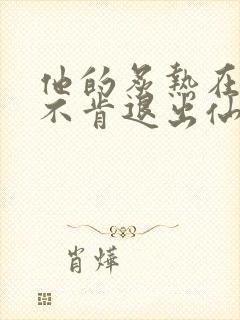 他的炙热在
不肯退出仙
肖烨